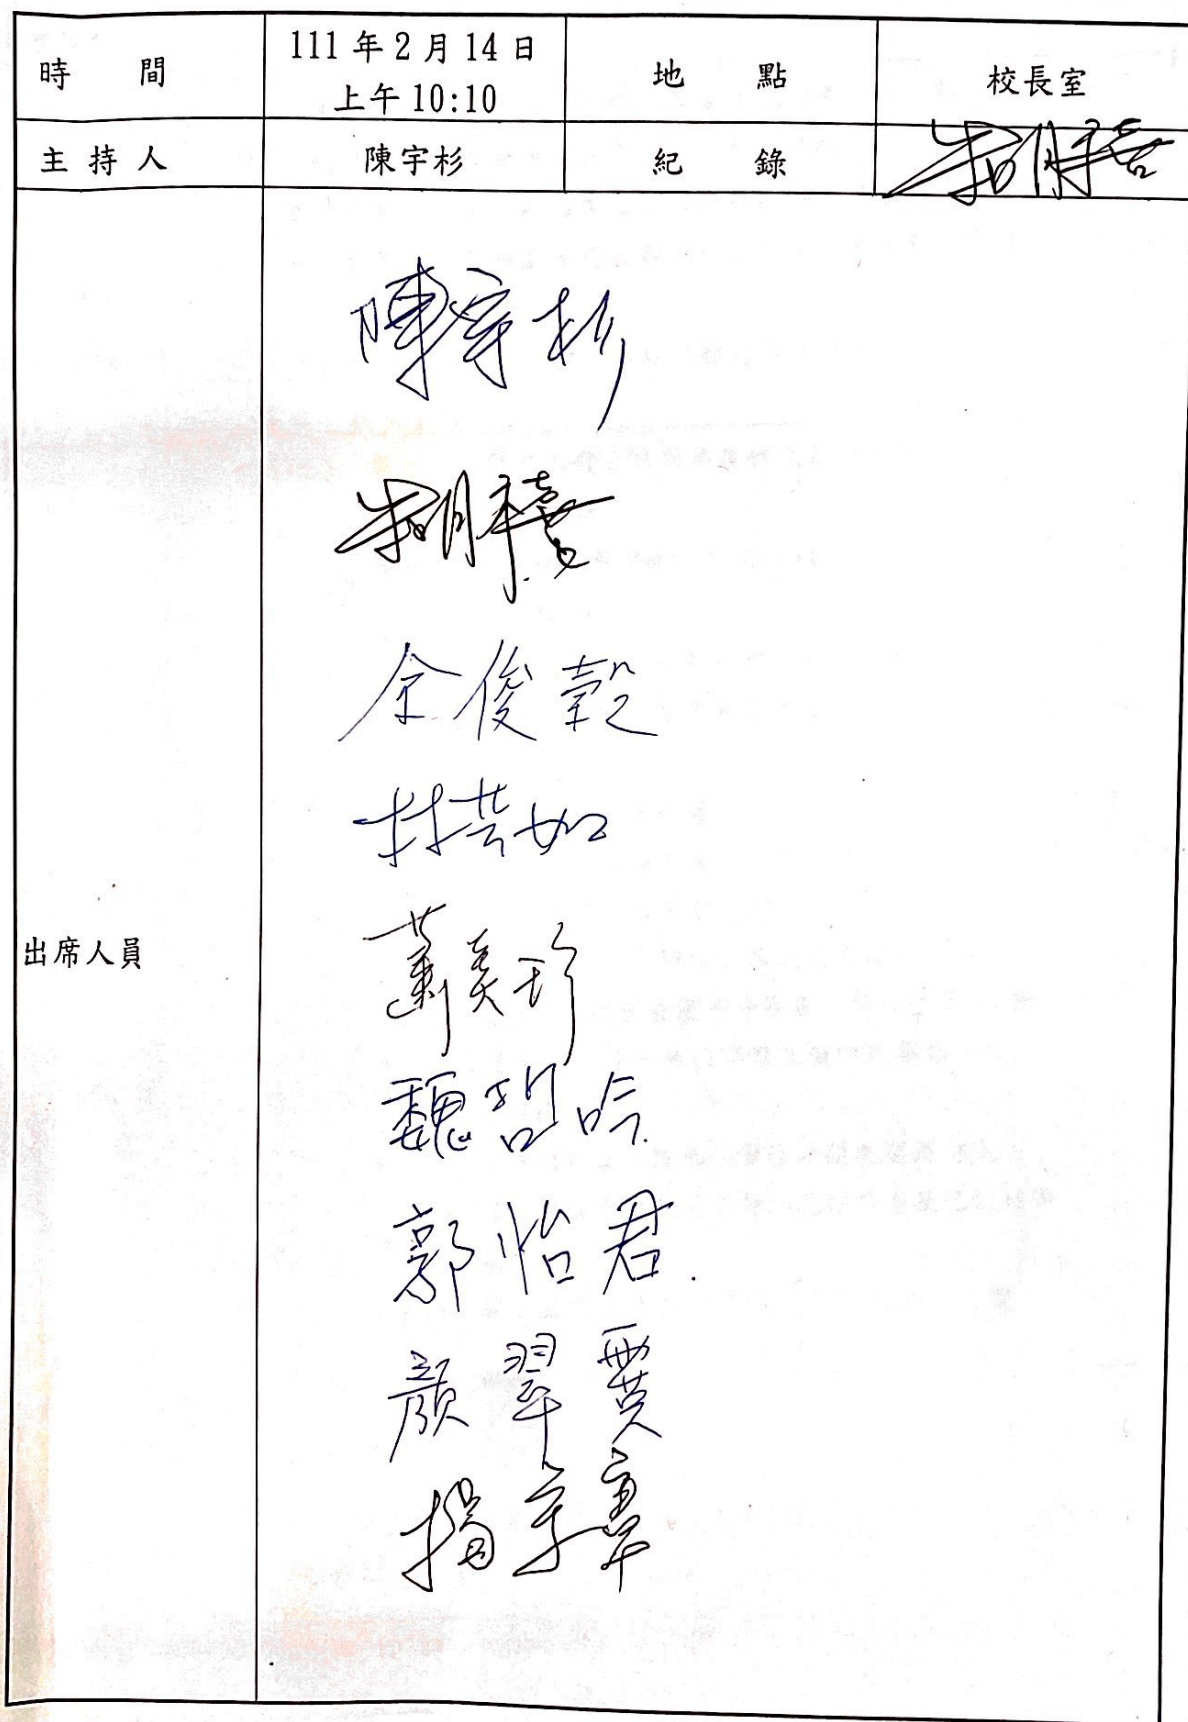 時 間 111年2月14日 上午10:10 地 點 校長室
主持人 陳宇杉 紀 錄
出席人員
陳宇杉
余俊毅
林芸如
蕭美珍
魏哲吟
郭怡君
顏翠